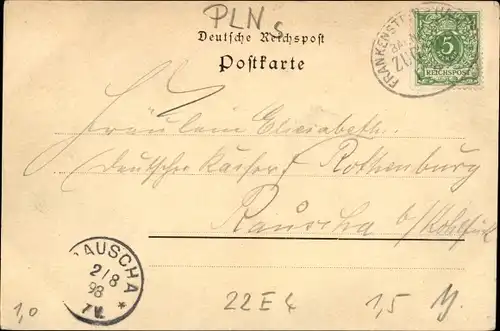 PLN S
Deutsche Reichspost
Postkarte
FRANKENSTEIN
BAHN
ZU
5
REICHSPOST
Fräulein Elisabeth.
(Deutscher Kaiser) Rothenburg
Rauscha b/Kohlfurt
RAUSCHA
2/8
98
7 V. *
1,0
22 E 4
1,5 M.